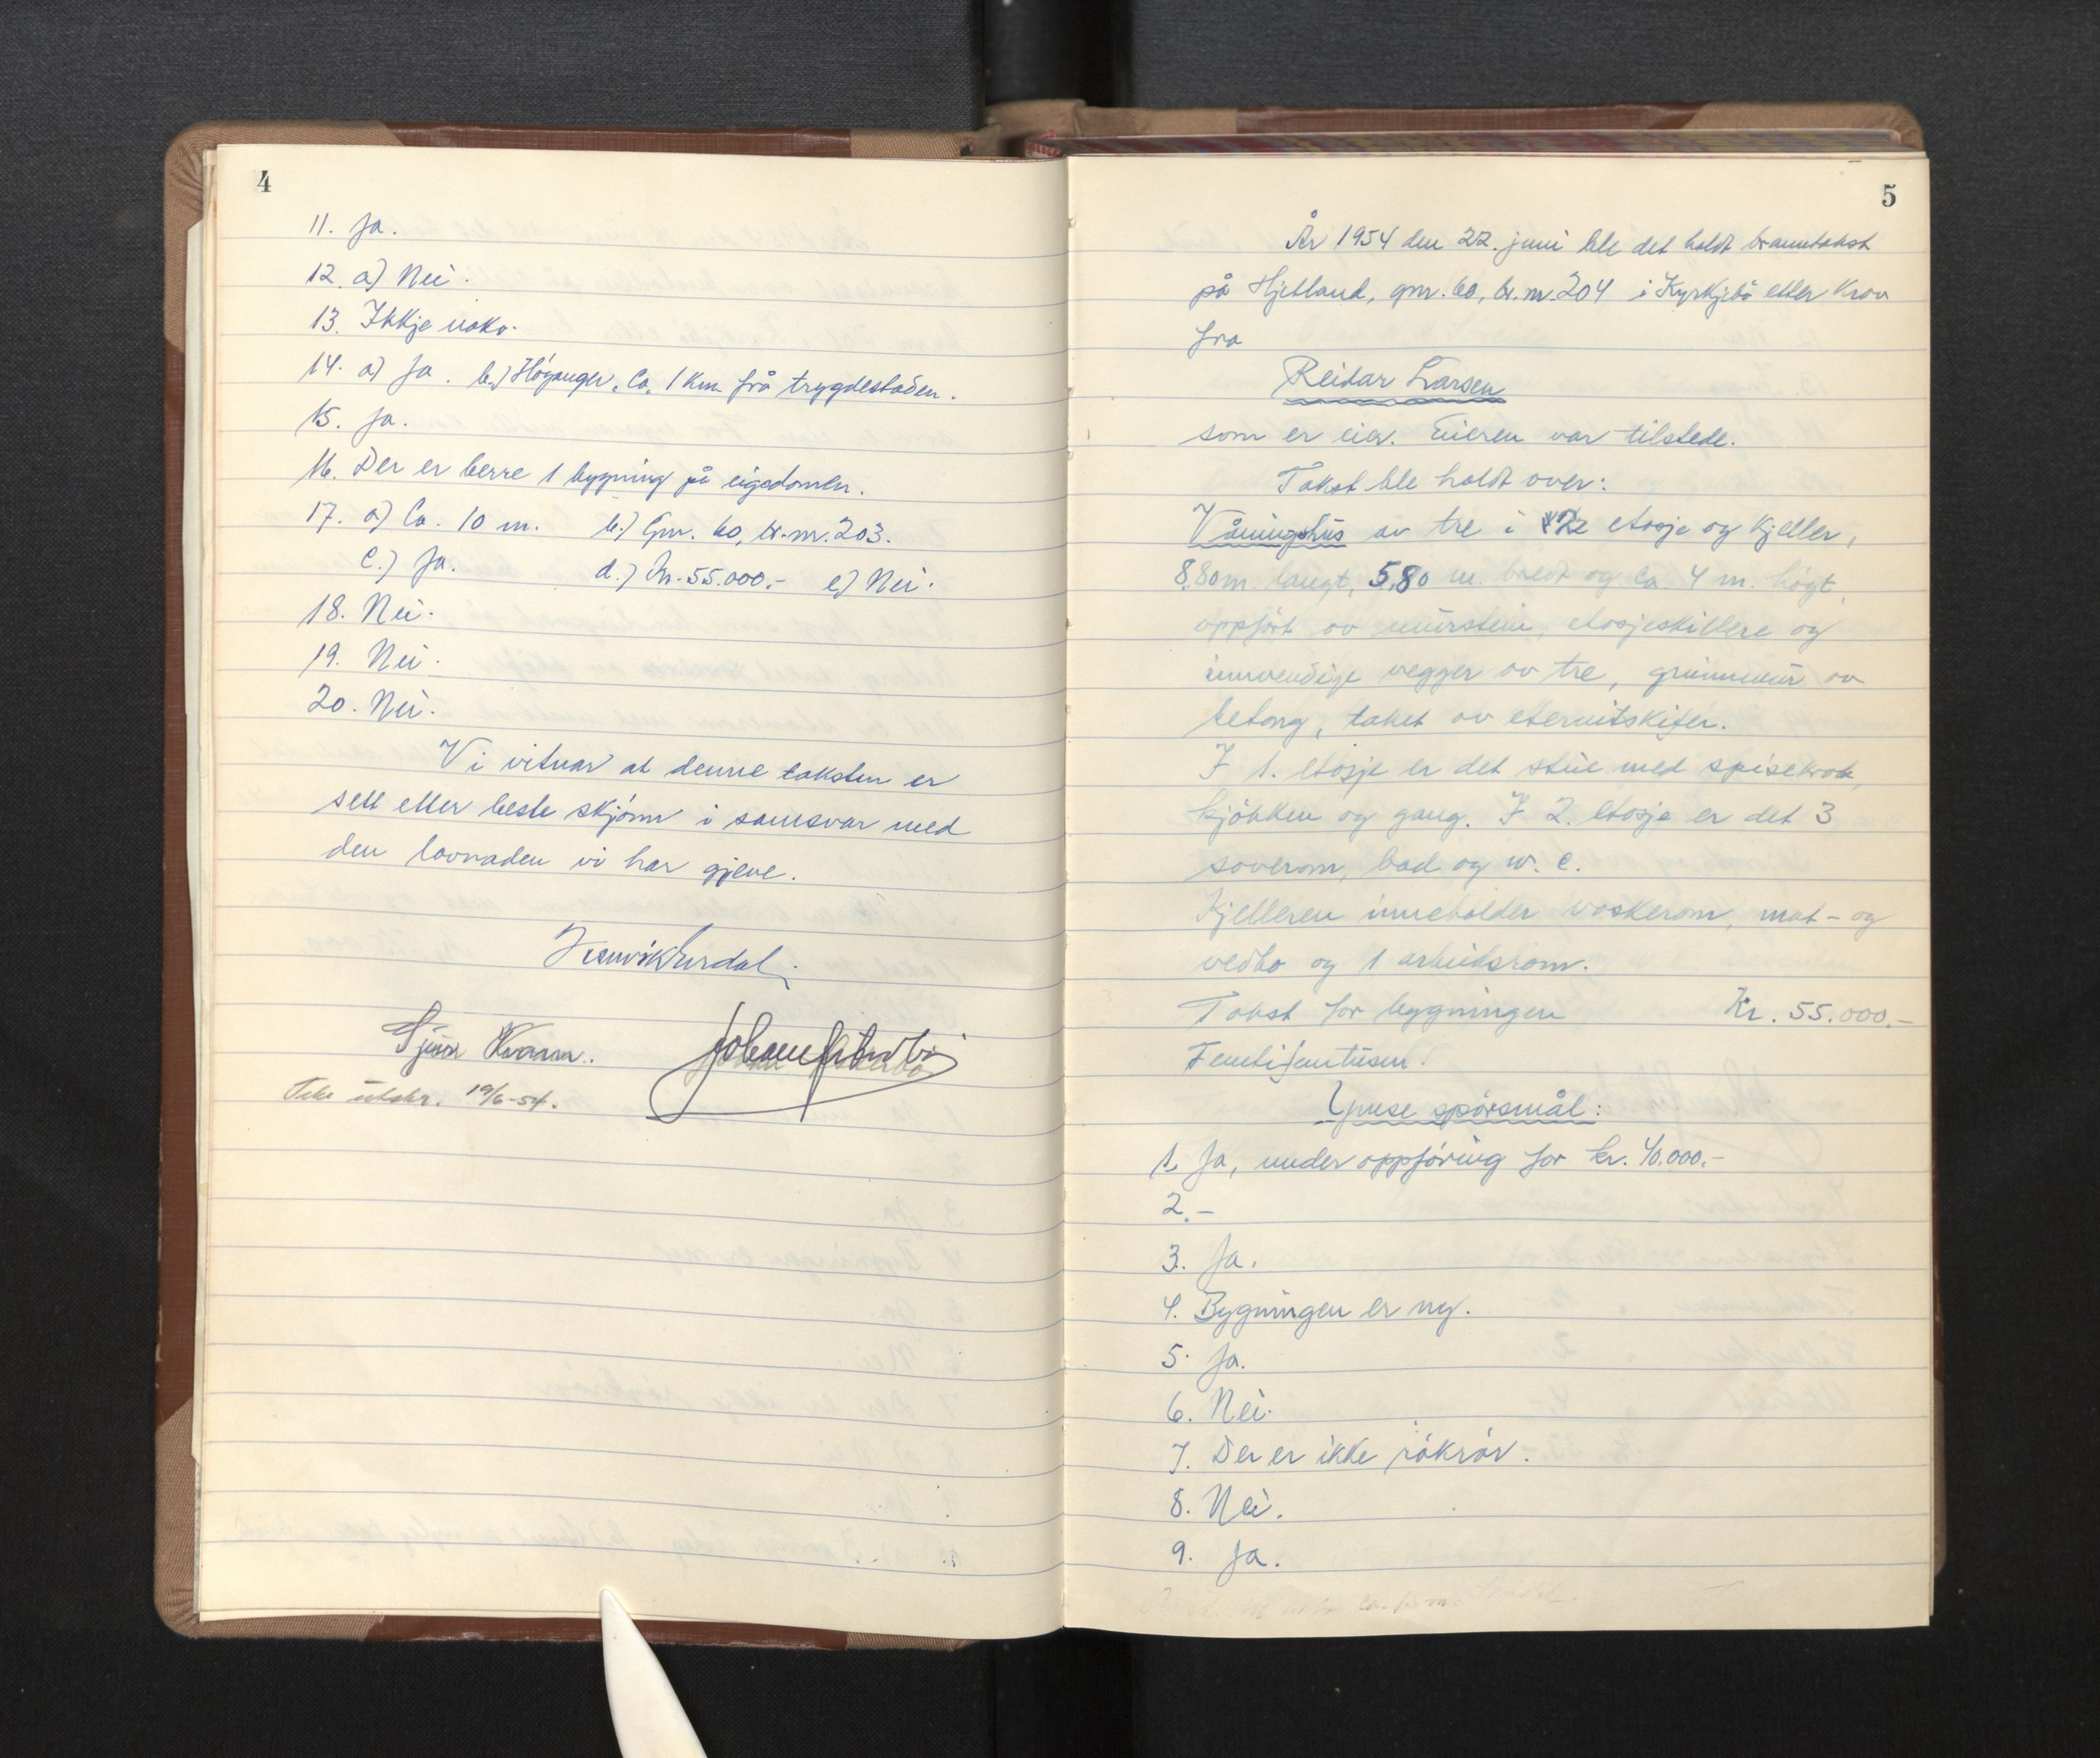 4
11. Ja.
12. a) Nei.
13. Ikkje noko.
14. a) Ja. b.) Höyanger, Ca. 1 Km frå trygdestaden.
15. Ja.
16. Der er berre 1 bygning på eigedomen.
17. a) Ca. 10 m. b.) Gnr. 60, br.nr. 203.
c.) Ja. d.) Kr. 55.000.- e) Nei.
18. Nei.
19. Nei.
20. Nei.
Vi vitnar at denne taksten er
sett etter beste skjönn i samsvar med
den lovnaden vi har gjeve.
Kvamm.
utskr. 19/6-54.
5
År 1954 den 22. juni ble det holdt branntakst
på Hjetland, gnr. 60, br.nr. 204 i Kyrkjebö etter Krav
fra
Reidar Larsen
som er eier. Eieren var tilstede.
Takst ble holdt over:
Våningshus av tre i 2 etasje og Kjeller,
8,80 m. langt, 5,80 m. bredt og Ca. 4 m. högt,
oppfört av murstein, etasjeskillere og
innvendige vegger av tre, grunnmur av
betong, taket av eternitskifer.
I 1. etasje er det stue med spisekrok,
kjökken og gang. I 2. etasje er det 3
soverom, bad og w.c.
Kjelleren inneholder vaskerom, mat- og
vedbo og 1 arbeidsrom.
Takst for bygningen Kr. 55.000.-
Femtifemtusen.
Ymse spörsmål:
1. Ja, under oppföring for kr. 40.000.-
2. -
3. Ja.
4. Bygningen er ny.
5. Ja.
6. Nei.
7. Der er ikke rökrör.
8. Nei.
9. Ja.